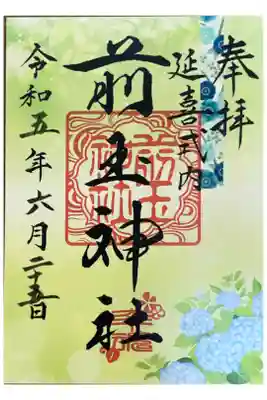 奉拝
延喜式内
前玉神社
令和五年六月二十五日